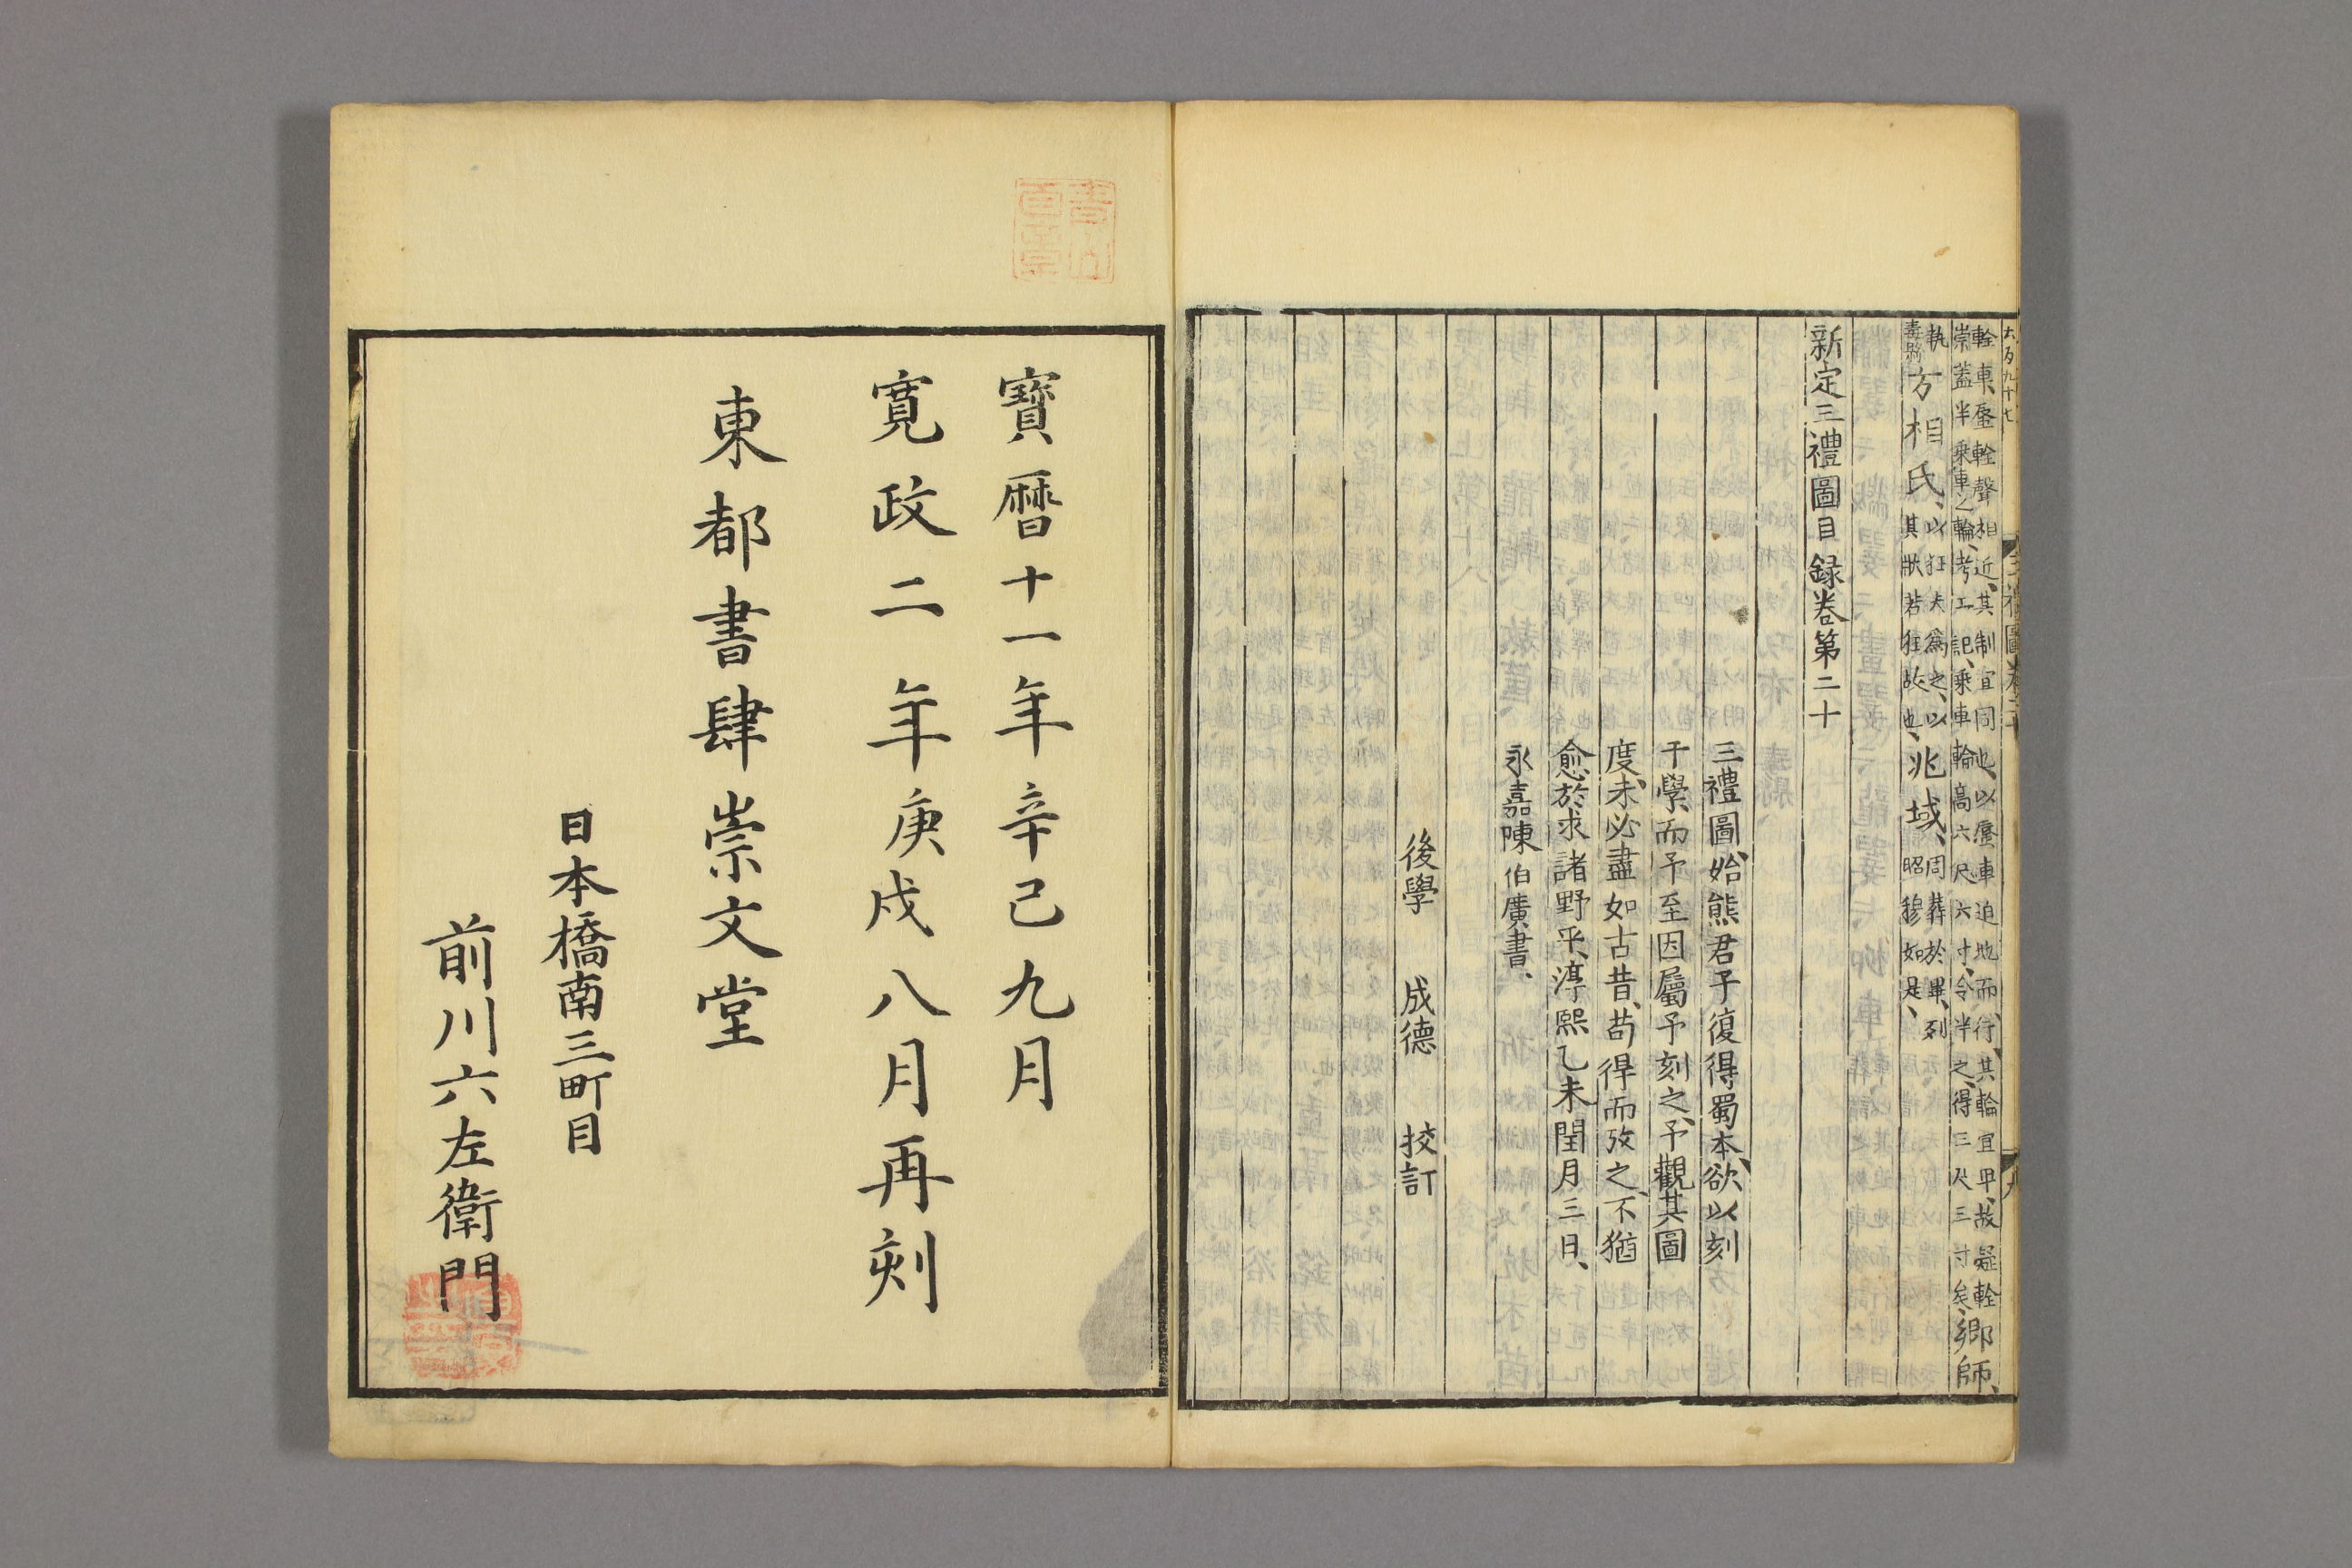 輇車、蜃輇聲相近、其制宜同也、以蜃車迫地而行、其輪宜卑、故疑輇
崇蓋半乘車之輪、考工記、乘車輪高六尺六寸、今半之、得三尺三寸矣、鄉師、
執
纛縣
方相氏、
以狂夫爲之、以
其狀若狂故也、
兆域、
周葬於畢、列
昭穆如是、
新定三禮圖目録卷第二十
三禮圖、始熊君子復得蜀本、欲以刻
于學、而予至因屬予刻之、予觀其圖
度、未必盡如古昔、苟得而攷之、不猶
愈於求諸野乎、淳熙乙未閏月三日、
永嘉陳伯廣書、
後學 成德 挍訂
寶曆十一年辛己九月
寛政二年庚戌八月再刻
東都書肆崇文堂
日本橋南三町目
前川六左衛門